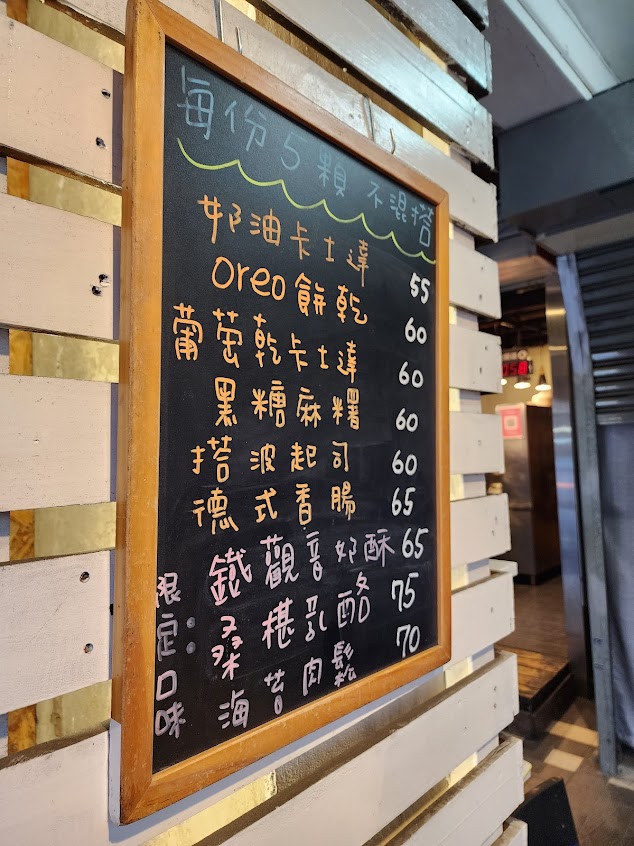 每份5顆 不混搭
奶油卡士達 55
oreo餅乾 60
葡萄乾卡士達 60
黑糖麻糬 60
搭波起司 60
德式香腸 65
限定:口味
鐵觀音奶酥 65
桑椹乳酪 75
海苔肉鬆 70